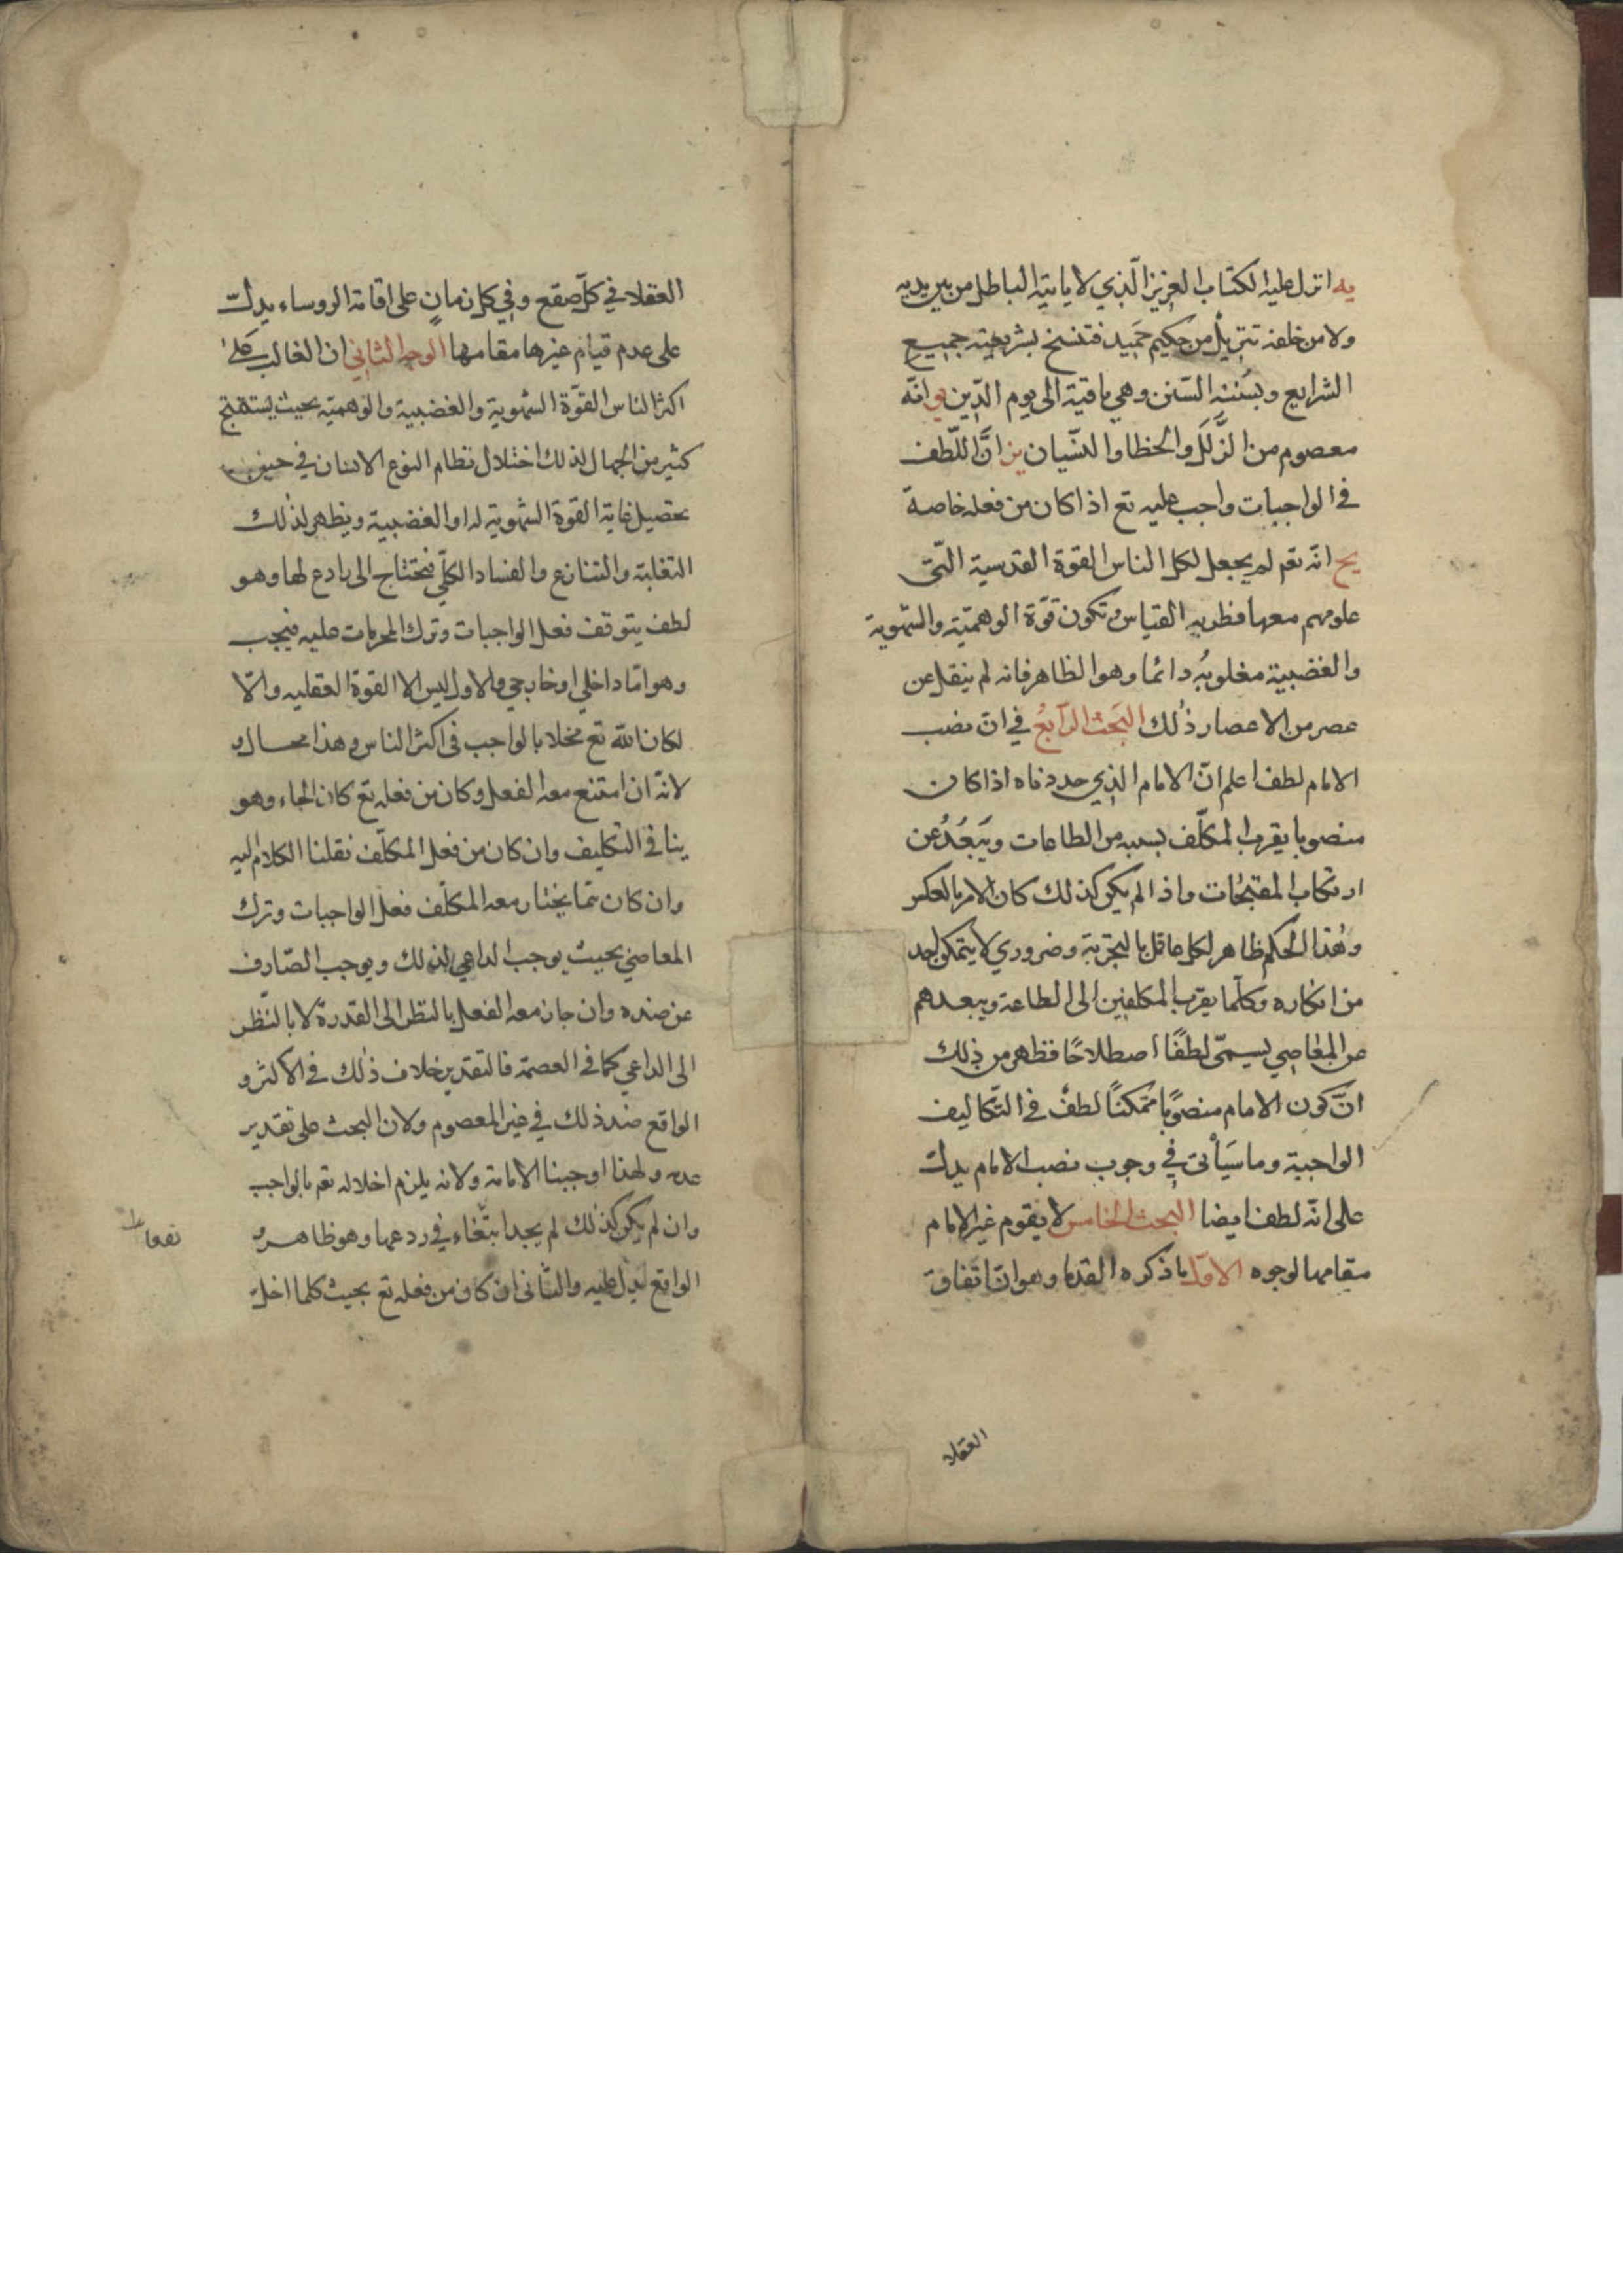 يه انزل عليه الكتاب العزيز الّذي لا ياتيه الباطل من بين يديه
ولا من خلفه تنزيل من حكيم حميد فتنسخ بشريعته جميع
الشرايع وبسُننه السّنن وهي باقية الى يوم الدّين يو انّه
معصوم من الزَّلَل والخطاء والنسّيان يز انَّ اللّطف
في الواجبات واجب عليه تع اذا كان من فعله خاصة
يح انّه تعم لم يجعل لكل الناس القوة القدسية الّتى
علومهم معها فطريه القياس وتكون قوّة الوهميّة والشهوية
والغضبية مغلوبهُ دائما وهو الظاهر فانه لم ينقل عن
عصر من الاعصار ذٰلك البَحث الرّابعُ في انّ نصب
الامام لطف اعلم انّ الامام الذي حددناه اذا كان
منصوبا يقرب المكلّف بسببه من الطاعات ويَبعُدُ عن
ارتكاب المقبّحات واذا لم يكن كذلك كان الامر بالعكس
وهٰذا الحكم ظاهر لكل عاقل بالتجربة وضروري لا يتمكن احد
من انكاره وكلّما يقرب المكلفين الى الطاعة ويبعدهم
عن المعاصي يسمّى لطفًا اصطلاحًا فظهر من ذلك
انّ كون الامام منصوبًا متمكنًا لطفٌ في التّكاليف
الواجبية وما سَيَأتى في وجوب نصب الامام يدلّ
على انّه لطف ايضا البحث الخامس لا يقوم غير الامام
مقامها لوجوه الاوّل ما ذكره القدما وهو انّ اتّفاق
العقلا
العقلا في كلّ صقع وفي كل زمانٍ على اقامة الروساء يدلّ
على عدم قيام غيرها مقامها الوجه الثاني ان الغالب على
اكثر الناس القوّة الشهوية والغضبية والوهميّه بحيث يستقبح
كثير من الجهال لذلك اختلال نظام النوع الانسان في
تحصيل غاية القوة الشهوية له او الغضبية ويظهر لذلك
التغلبة والتنازع والفساد الكلّي فيحتاج الى رادع لها وهو
لطف يتوقف فعل الواجبات وترك المحرمات عليه فيجب
وهو امّا داخلي او خارجي والاول ليس الا القوة العقليه والّا
لكان الله تع مخلا بالواجب في اكثر الناس وهذا محال و
لانّه ان امتنع معه الفعل وكان من فعله تع كان الجاء وهو
ينافي التكليف وان كان من فعل المكلّف نقلنا الكلام اليه
وان كان ممّا يختار معه المكلّف فعل الواجبات وترك
المعاصي بحيث يوجب الداعي لذلك ويوجب الصّارف
عن ضده وان جاز معه الفعل بالنظر الى القدرة لا بالنّظر
الى الداعي كما في العصمة فالتقدير خلاف ذٰلك في الاكثر و
الواقع ضد ذلك في غير المعصوم ولان البحث على تقدير
عدمه ولهذا اوجبنا الامامة ولانه يلزم اخلاله تعم بالواجب
وان لم يكن كذٰلك لم يجد انتفاء في ردعها وهو ظاهر و
الواقع يدل عليه والثّانى ان كان من فعله تع بحيث كلما اخلّ